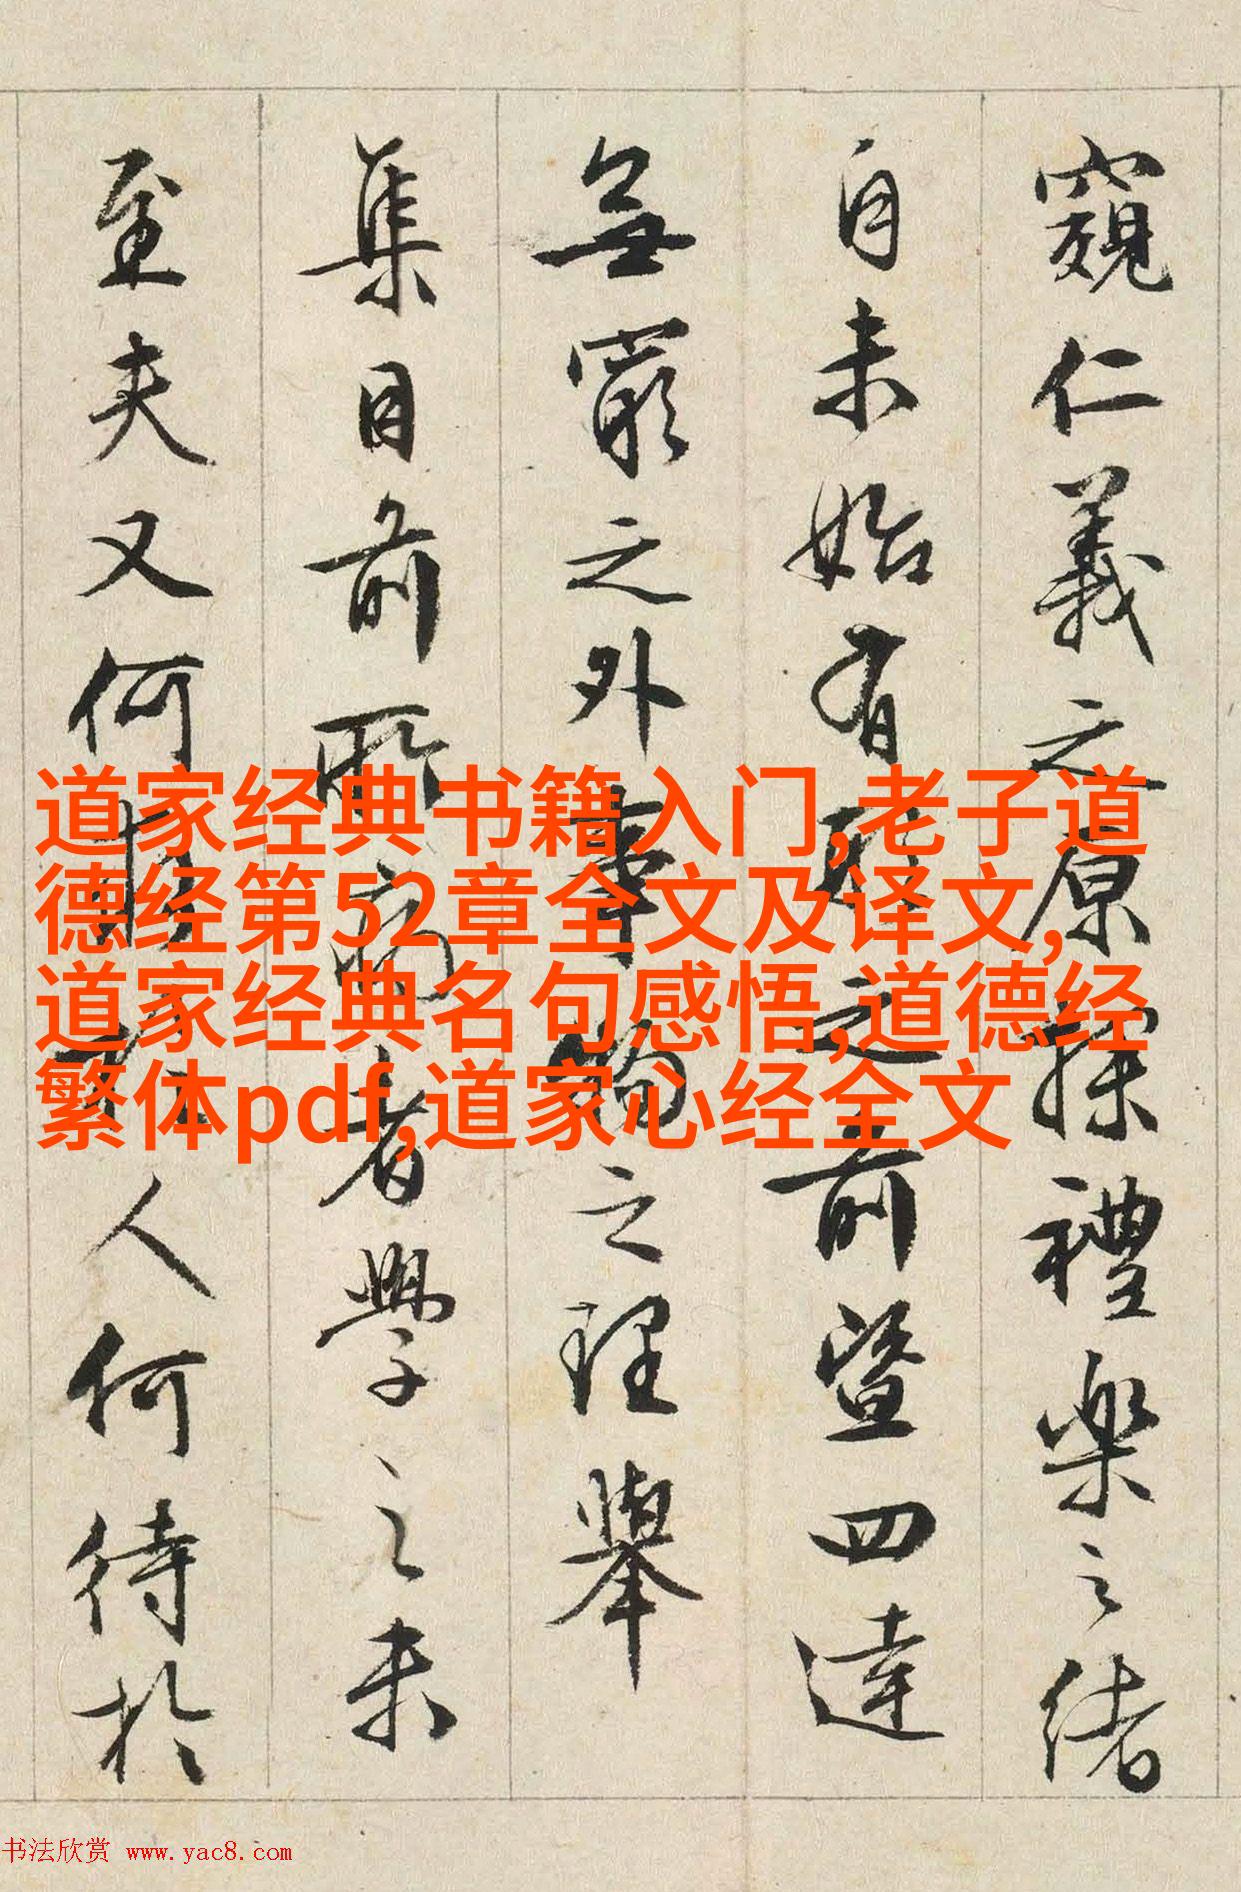 窺仁義之原探禮樂之緒
自未始有形之前暨四達
無窮之外事物之理舉
集目前所病者學之未
至夫又何於人何待於
道家经典书籍入门,老子道
德经第52章全文及译文,
道家经典名句感悟,道德经
繁体pdf,道家心经全文
书法欣赏 www.yac8.com